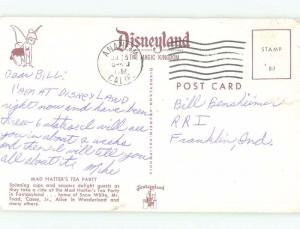 Disneyland
THE MAGIC KINGDOM
ANAHEIM
CALIF.
STAMP
POST CARD
Dear Bill:
I am AT DISNEYLAND
right now and have been
thru 6 states I will see
you in about 2 weeks
and then I will tell you
all about it. Mike
Bill Bensheimer
R.R.1
Franklin, Ind.
MAD HATTER'S TEA PARTY
Spinning cups and saucers delight guests as
they take a ride at the Mad Hatter's Tea Party
in Fantasyland . . . home of Snow White, Mr.
Toad, Casey, Jr., Alice in Wonderland and
many others.
Fantasyland